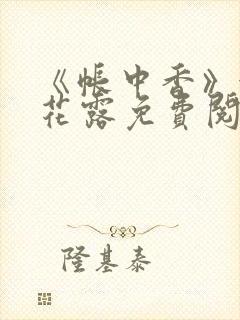 《帐中香》
花露免费阅
隆基泰